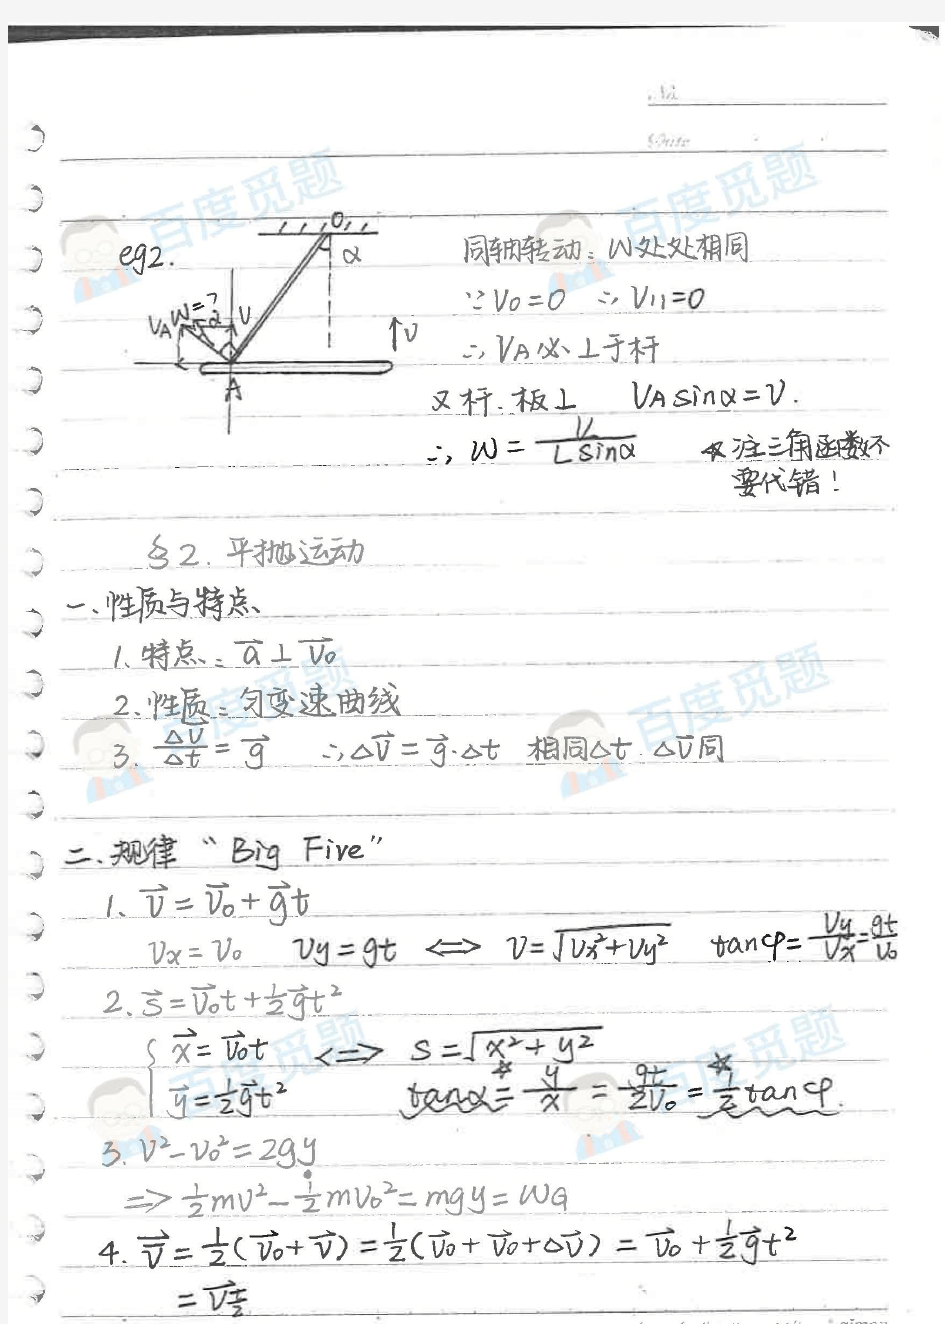 No.
Date
eg2.
O
α
同轴转动：W处处相同
∵V₀=0 ∴V₁₁=0
VA W=? α V
↑v
∴VA必⊥于杆
A
又杆、板⊥ VA sinα=V.
∴W=V/(L sinα) ☆注三角函数不
要代错！
§2. 平抛运动
一、性质与特点、
1、特点、：a⃗⊥V⃗₀
2、性质：匀变速曲线
3. ΔV⃗/Δt=g⃗ ∴ΔV⃗=g⃗·Δt 相同Δt ΔV⃗同
二、规律“Big Five”
1、V⃗=V⃗₀+g⃗t
Vx=V₀ Vy=gt ⟺ V=√(Vx²+Vy²) tanφ=Vy/Vx=gt/V₀
2、s⃗=V⃗₀t+½g⃗t²
x⃗=V⃗₀t ⟺ S=√(x²+y²)
y⃗=½g⃗t² tanα=☆y/x=gt/2V₀=☆½tanφ.
3. V²-V₀²=2gy
=>½mV²-½mV₀²=mgy=WG
4. V⃗=½(V⃗₀+V⃗)=½(V⃗₀+V⃗₀+ΔV⃗)=V⃗₀+½g⃗t²
=V⃗t/2
百度觅题
百度觅题
百度觅题
百度觅题
百度觅题
百度觅题